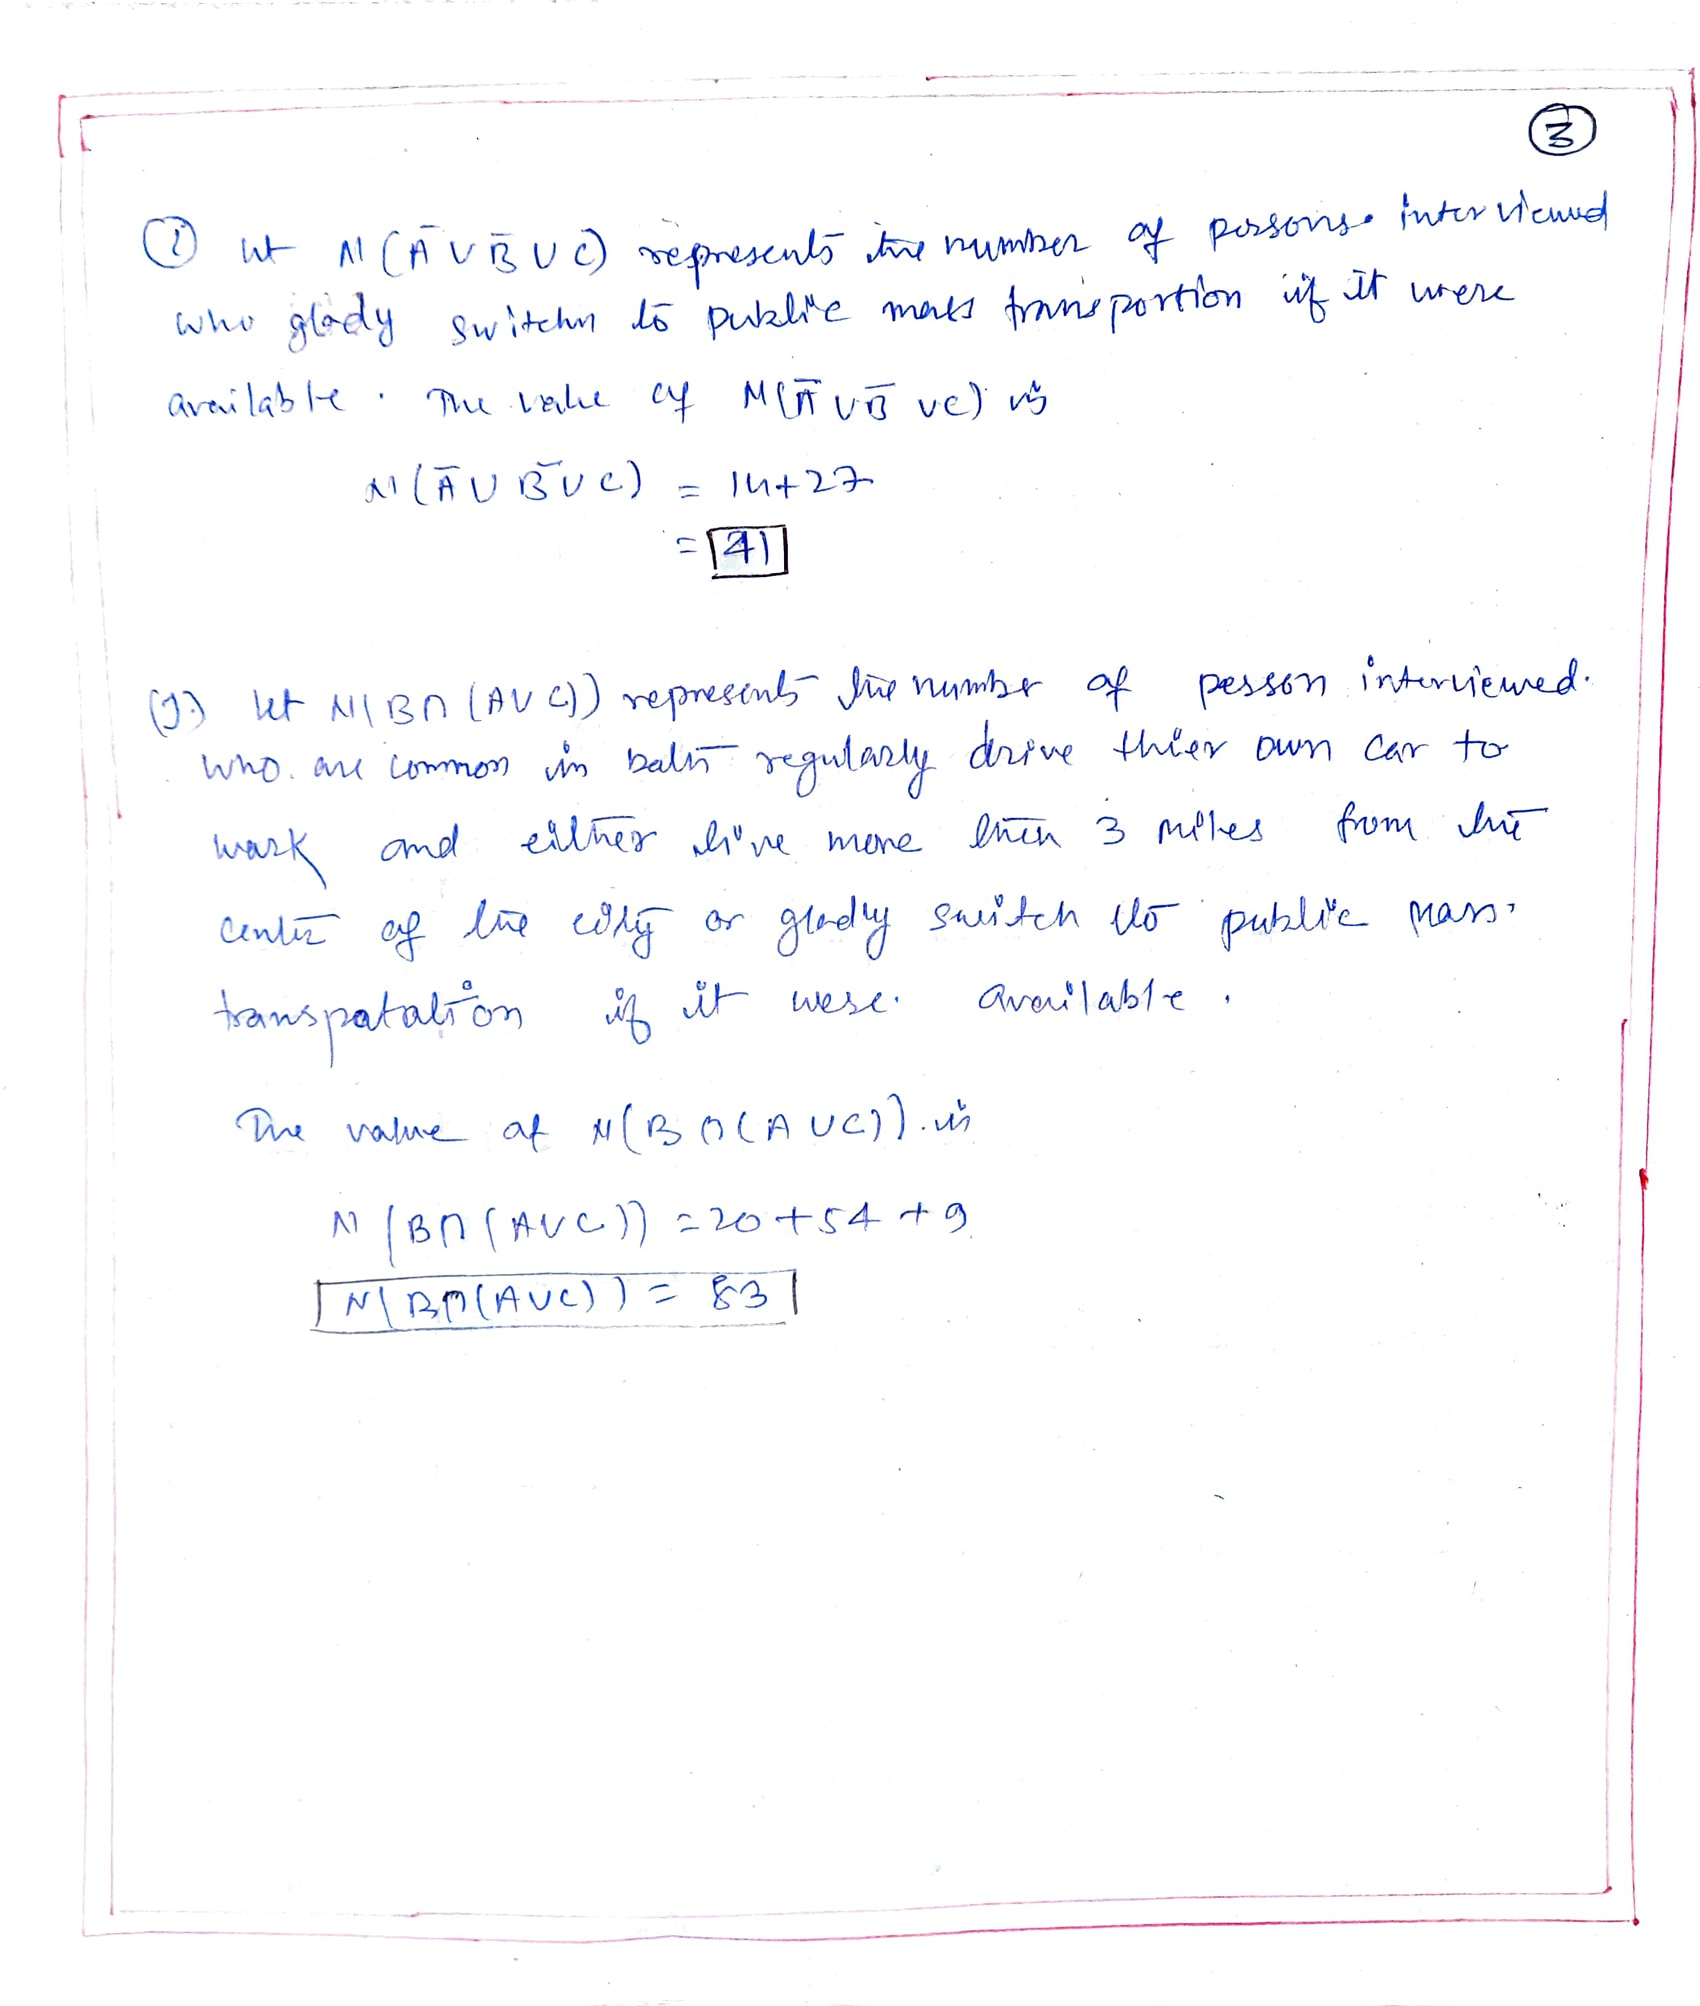 3
(i) let N(Ā ∪ B̄ ∪ C) represents the number of persons interviewed
who glady switchn to public mass transportion if it were
available. The value of N(Ā ∪ B̄ ∪ C) is
N(Ā ∪ B̄ ∪ C) = 14+27
= 41
(J) let N(B∩(A∪C)) represents the number of person interviewed.
who are common in both regularly drive thier own car to
work and either live more then 3 miles from the
center of the city or gladly switch to public mass
transpatation if it were available.
The value of N(B∩(A∪C)) is
N(B∩(A∪C)) = 20+54+9
N(B∩(A∪C)) = 83